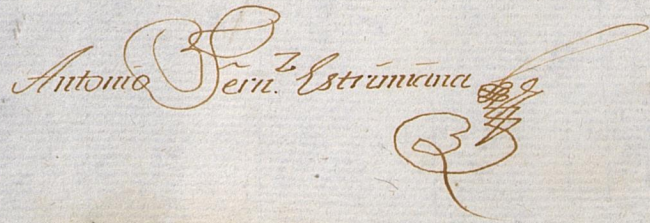 Antonio Fern.z Estriniana